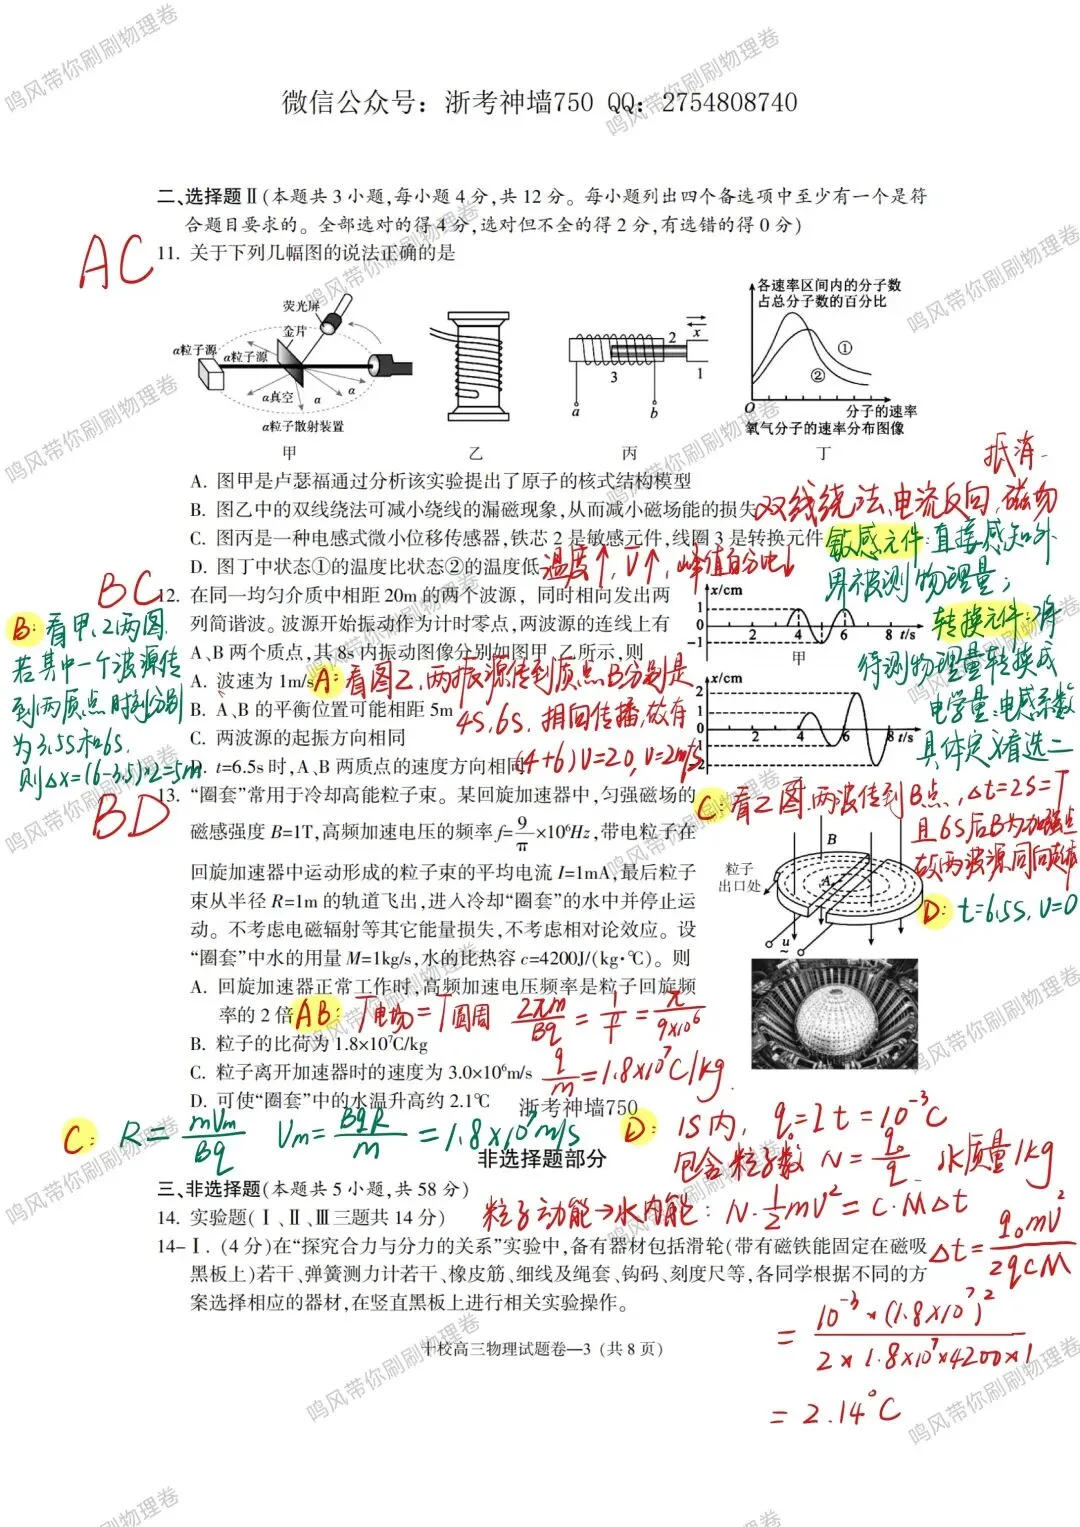 鸣风带你刷刷物理卷
鸣风带你刷刷物理卷
微信公众号：浙考神墙750 QQ：2754808740
二、选择题Ⅱ(本题共 3 小题,每小题 4 分,共 12 分。每小题列出四个备选项中至少有一个是符
合题目要求的。全部选对的得 4 分,选对但不全的得 2 分,有选错的得 0 分)
AC
11. 关于下列几幅图的说法正确的是
荧光屏
金片
α粒子源
α粒子源
α真空
α
α
α粒子散射装置
甲
乙
x
2
1
3
a
b
丙
各速率区间内的分子数
占总分子数的百分比
①
②
O
分子的速率
氧气分子的速率分布图像
丁
A. 图甲是卢瑟福通过分析该实验提出了原子的核式结构模型
B. 图乙中的双线绕法可减小绕线的漏磁现象,从而减小磁场能的损失
双线绕法,电流反向,磁场
抵消
C. 图丙是一种电感式微小位移传感器,铁芯 2 是敏感元件,线圈 3 是转换元件
敏感元件:直接感知外
界被测物理量;
转换元件:将
待测物理量转换成
电学量:电感系数
具体定义看选二
D. 图丁中状态①的温度比状态②的温度低
温度↑,V̄↑,峰值百分比↓
BC
12. 在同一均匀介质中相距 20m 的两个波源，同时相向发出两
列简谐波。波源开始振动作为计时零点,两波源的连线上有
A、B 两个质点,其 8s 内振动图像分别如图甲、乙所示,则
A. 波速为 1m/s
A:看图乙,两振源传到质点B分别是
4s,6s.相向传播,故有
(4+6)v=20,v=2m/s
B. A、B 的平衡位置可能相距 5m
C. 两波源的起振方向相同
D. t=6.5s 时,A、B 两质点的速度方向相同
B:看甲、乙两图.
若其中一个波源传
到两质点时刻分别
为3.5s和6s.
则Δx=(6-3.5)×2=5m
x/cm
1
0
-1
2
4
6
8 t/s
甲
x/cm
2
1
0
-1
-2
2
4
6
8 t/s
C:看乙图,两波传到B点,Δt=2s=T
且6s后B为加强点
故两波源同向起振
D:t=6.5s,v=0
BD
13. “圈套”常用于冷却高能粒子束。某回旋加速器中,匀强磁场的
磁感强度 B=1T,高频加速电压的频率 f=9/π×10⁶Hz,带电粒子在
回旋加速器中运动形成的粒子束的平均电流 I=1mA,最后粒子
束从半径 R=1m 的轨道飞出,进入冷却“圈套”的水中并停止运
动。不考虑电磁辐射等其它能量损失,不考虑相对论效应。设
“圈套”中水的用量 M=1kg/s,水的比热容 c=4200J/(kg·℃)。则
粒子
出口处
B
A
u
A. 回旋加速器正常工作时,高频加速电压频率是粒子回旋频
率的 2 倍
AB:T电场=T圆周 2πm/Bq=1/f=π/9×10⁶
B. 粒子的比荷为 1.8×10⁷C/kg
C. 粒子离开加速器时的速度为 3.0×10⁶m/s
q/m=1.8×10⁷C/kg
D. 可使“圈套”中的水温升高约 2.1℃
浙考神墙750
C: R=mVm/Bq Vm=BqR/m=1.8×10⁷m/s
D: 1s内, q₀=It=10⁻³C
包含粒子数 N=q₀/q 水质量1kg
粒子动能→水内能: N·½mv²=C·MΔt
Δt=q₀mv²/2qCM
=10⁻³×(1.8×10⁷)²/2×1.8×10⁷×4200×1
=2.14°C
非选择题部分
三、非选择题(本题共 5 小题,共 58 分)
14. 实验题(Ⅰ、Ⅱ、Ⅲ三题共 14 分)
14-Ⅰ. (4 分)在“探究合力与分力的关系”实验中,备有器材包括滑轮(带有磁铁能固定在磁吸
黑板上)若干、弹簧测力计若干、橡皮筋、细线及绳套、钩码、刻度尺等,各同学根据不同的方
案选择相应的器材,在竖直黑板上进行相关实验操作。
十校高三物理试题卷—3 (共 8 页)